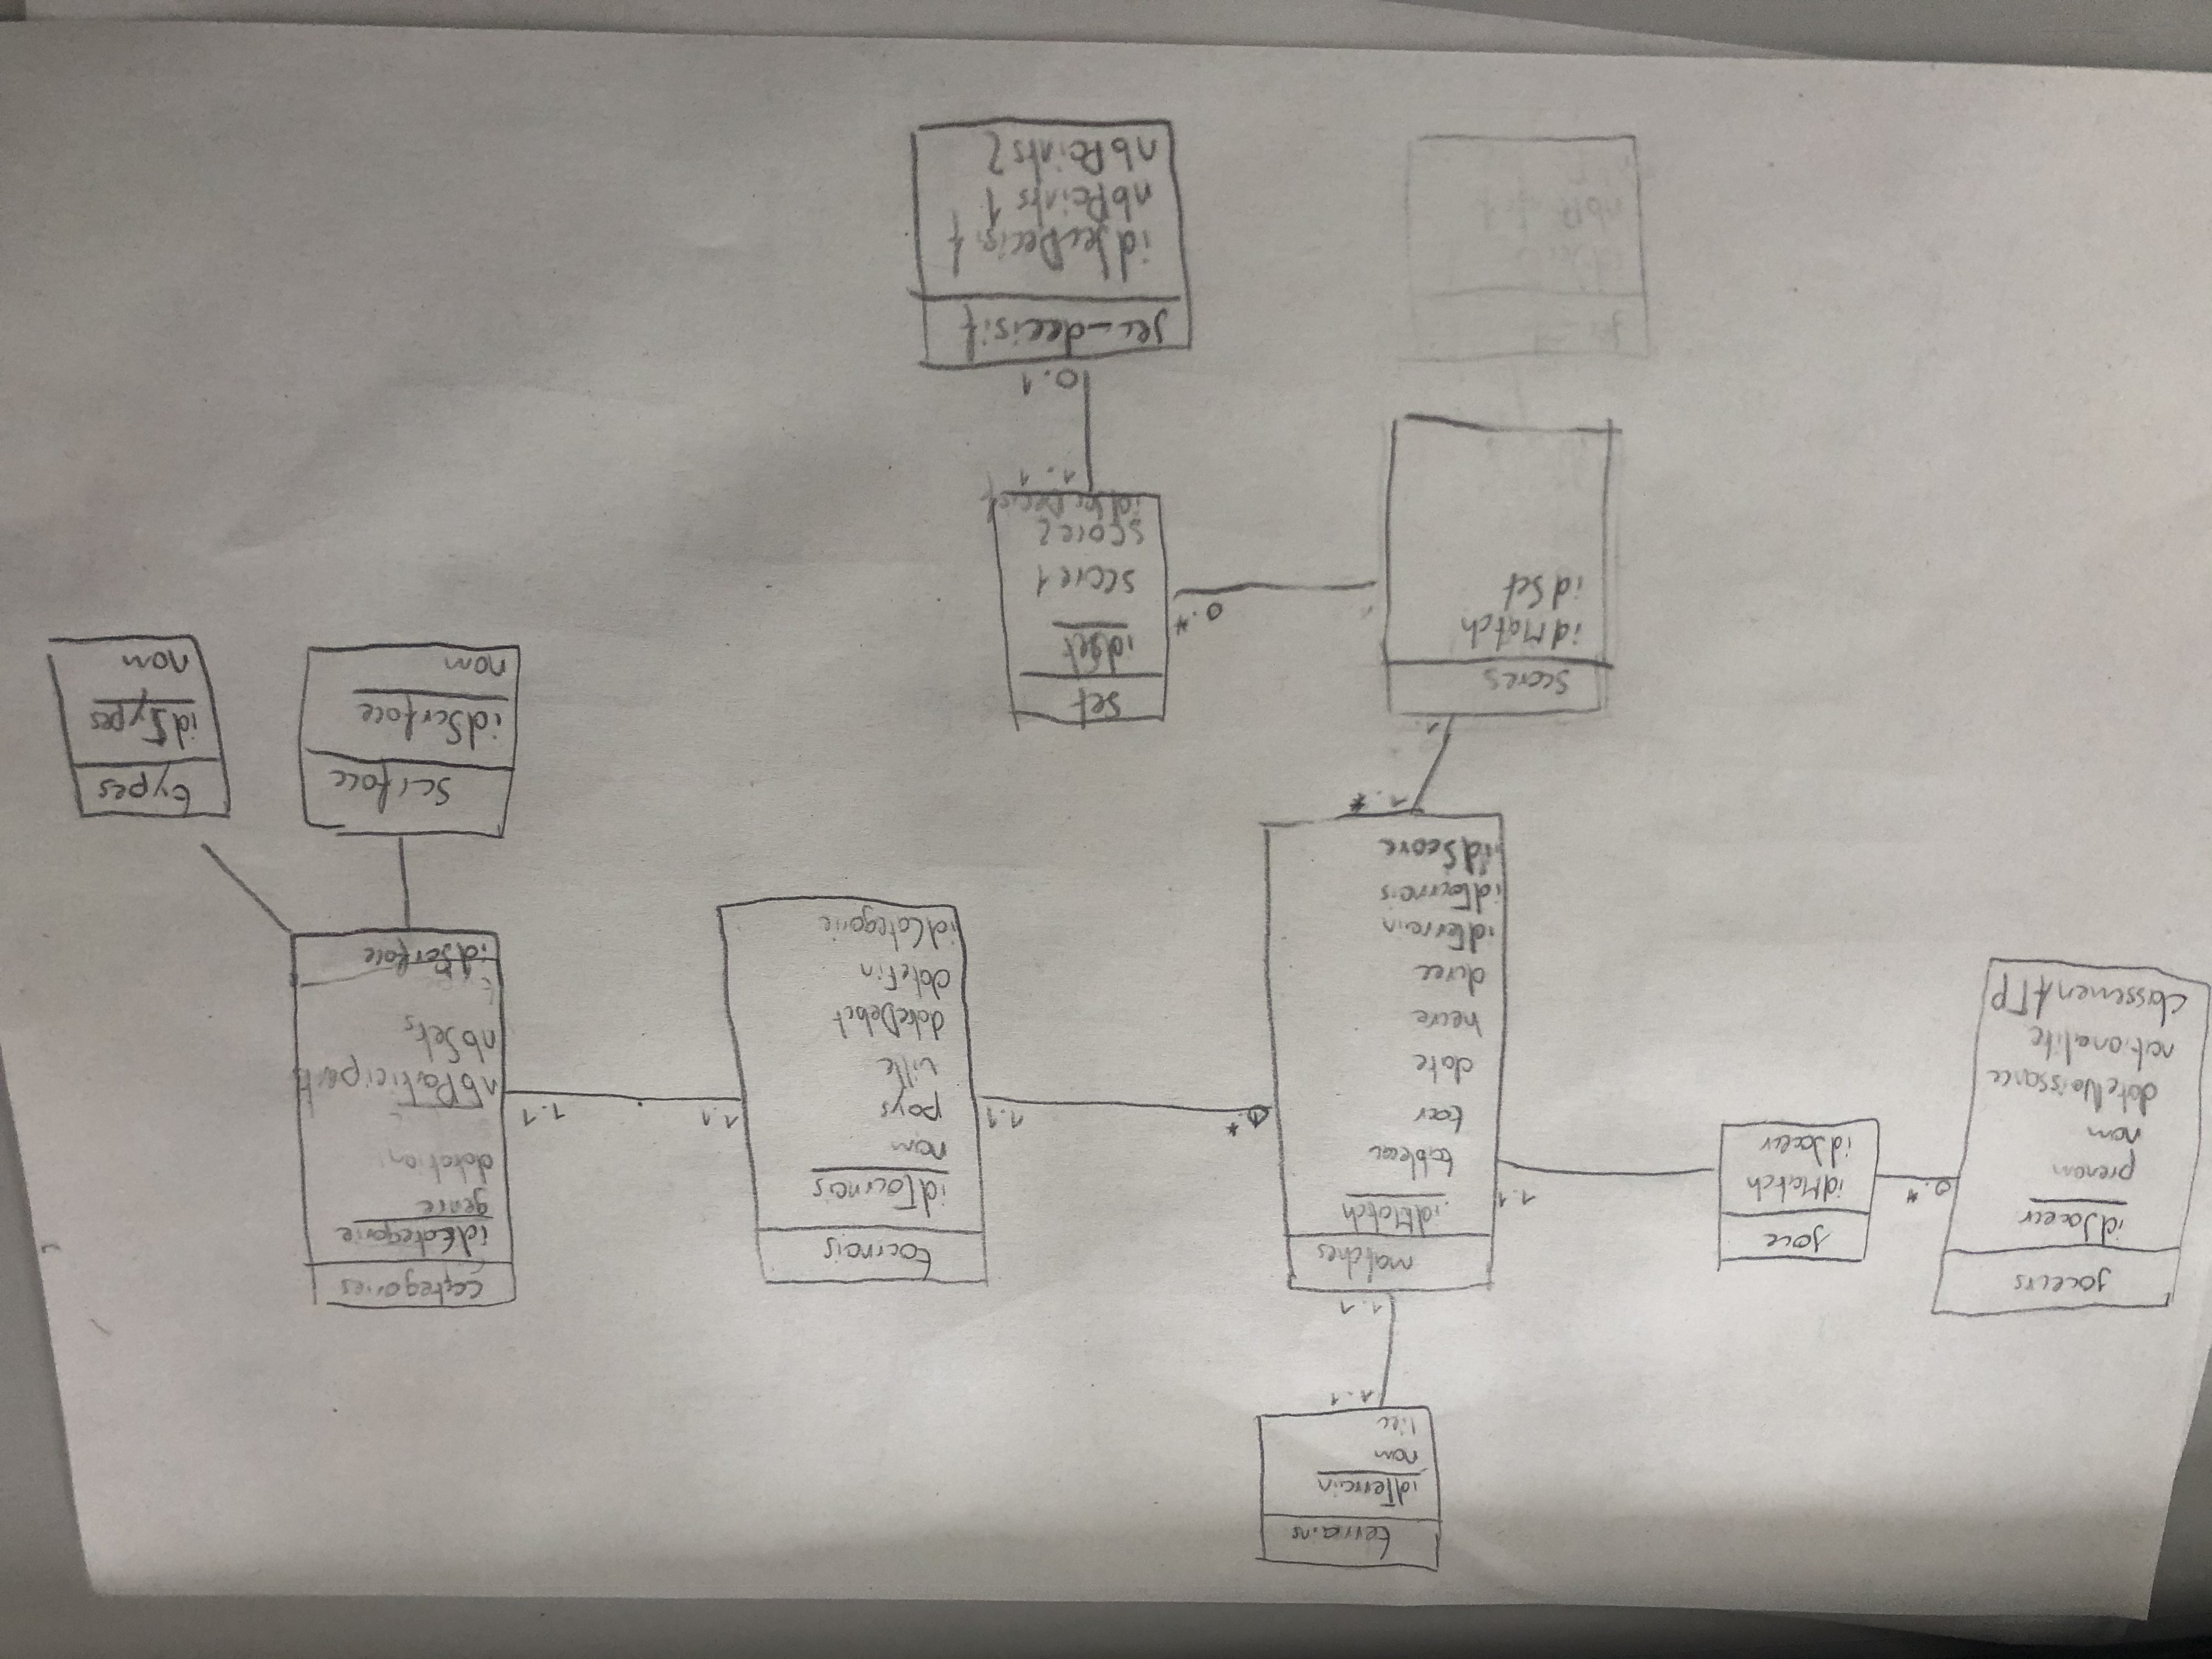 terrains
idTerrain
nom
lieu
1.1
1.1
joueurs
idJoueur
prenom
nom
dateNaissance
nationalite
classemenATP
0.*
joue
idMatch
idJoueur
1.1
matches
idMatch
tableau
tour
date
heure
duree
idTerrain
idTournois
idScore
1.*
1.
*
1.1
tournois
idTournois
nom
pays
ville
dateDebut
dateFin
idCategorie
1.1
1.1
categories
idCategorie
genre
dotation
nbParticipants
nbSets
idSurface
surface
idSurface
nom
types
idTypes
nom
scores
idMatch
idSet
0.*
set
idSet
score1
score2
idJeuDecisif
1.1
0.1
jeu_decisif
idJeuDecisif
nbPoints1
nbPoints2